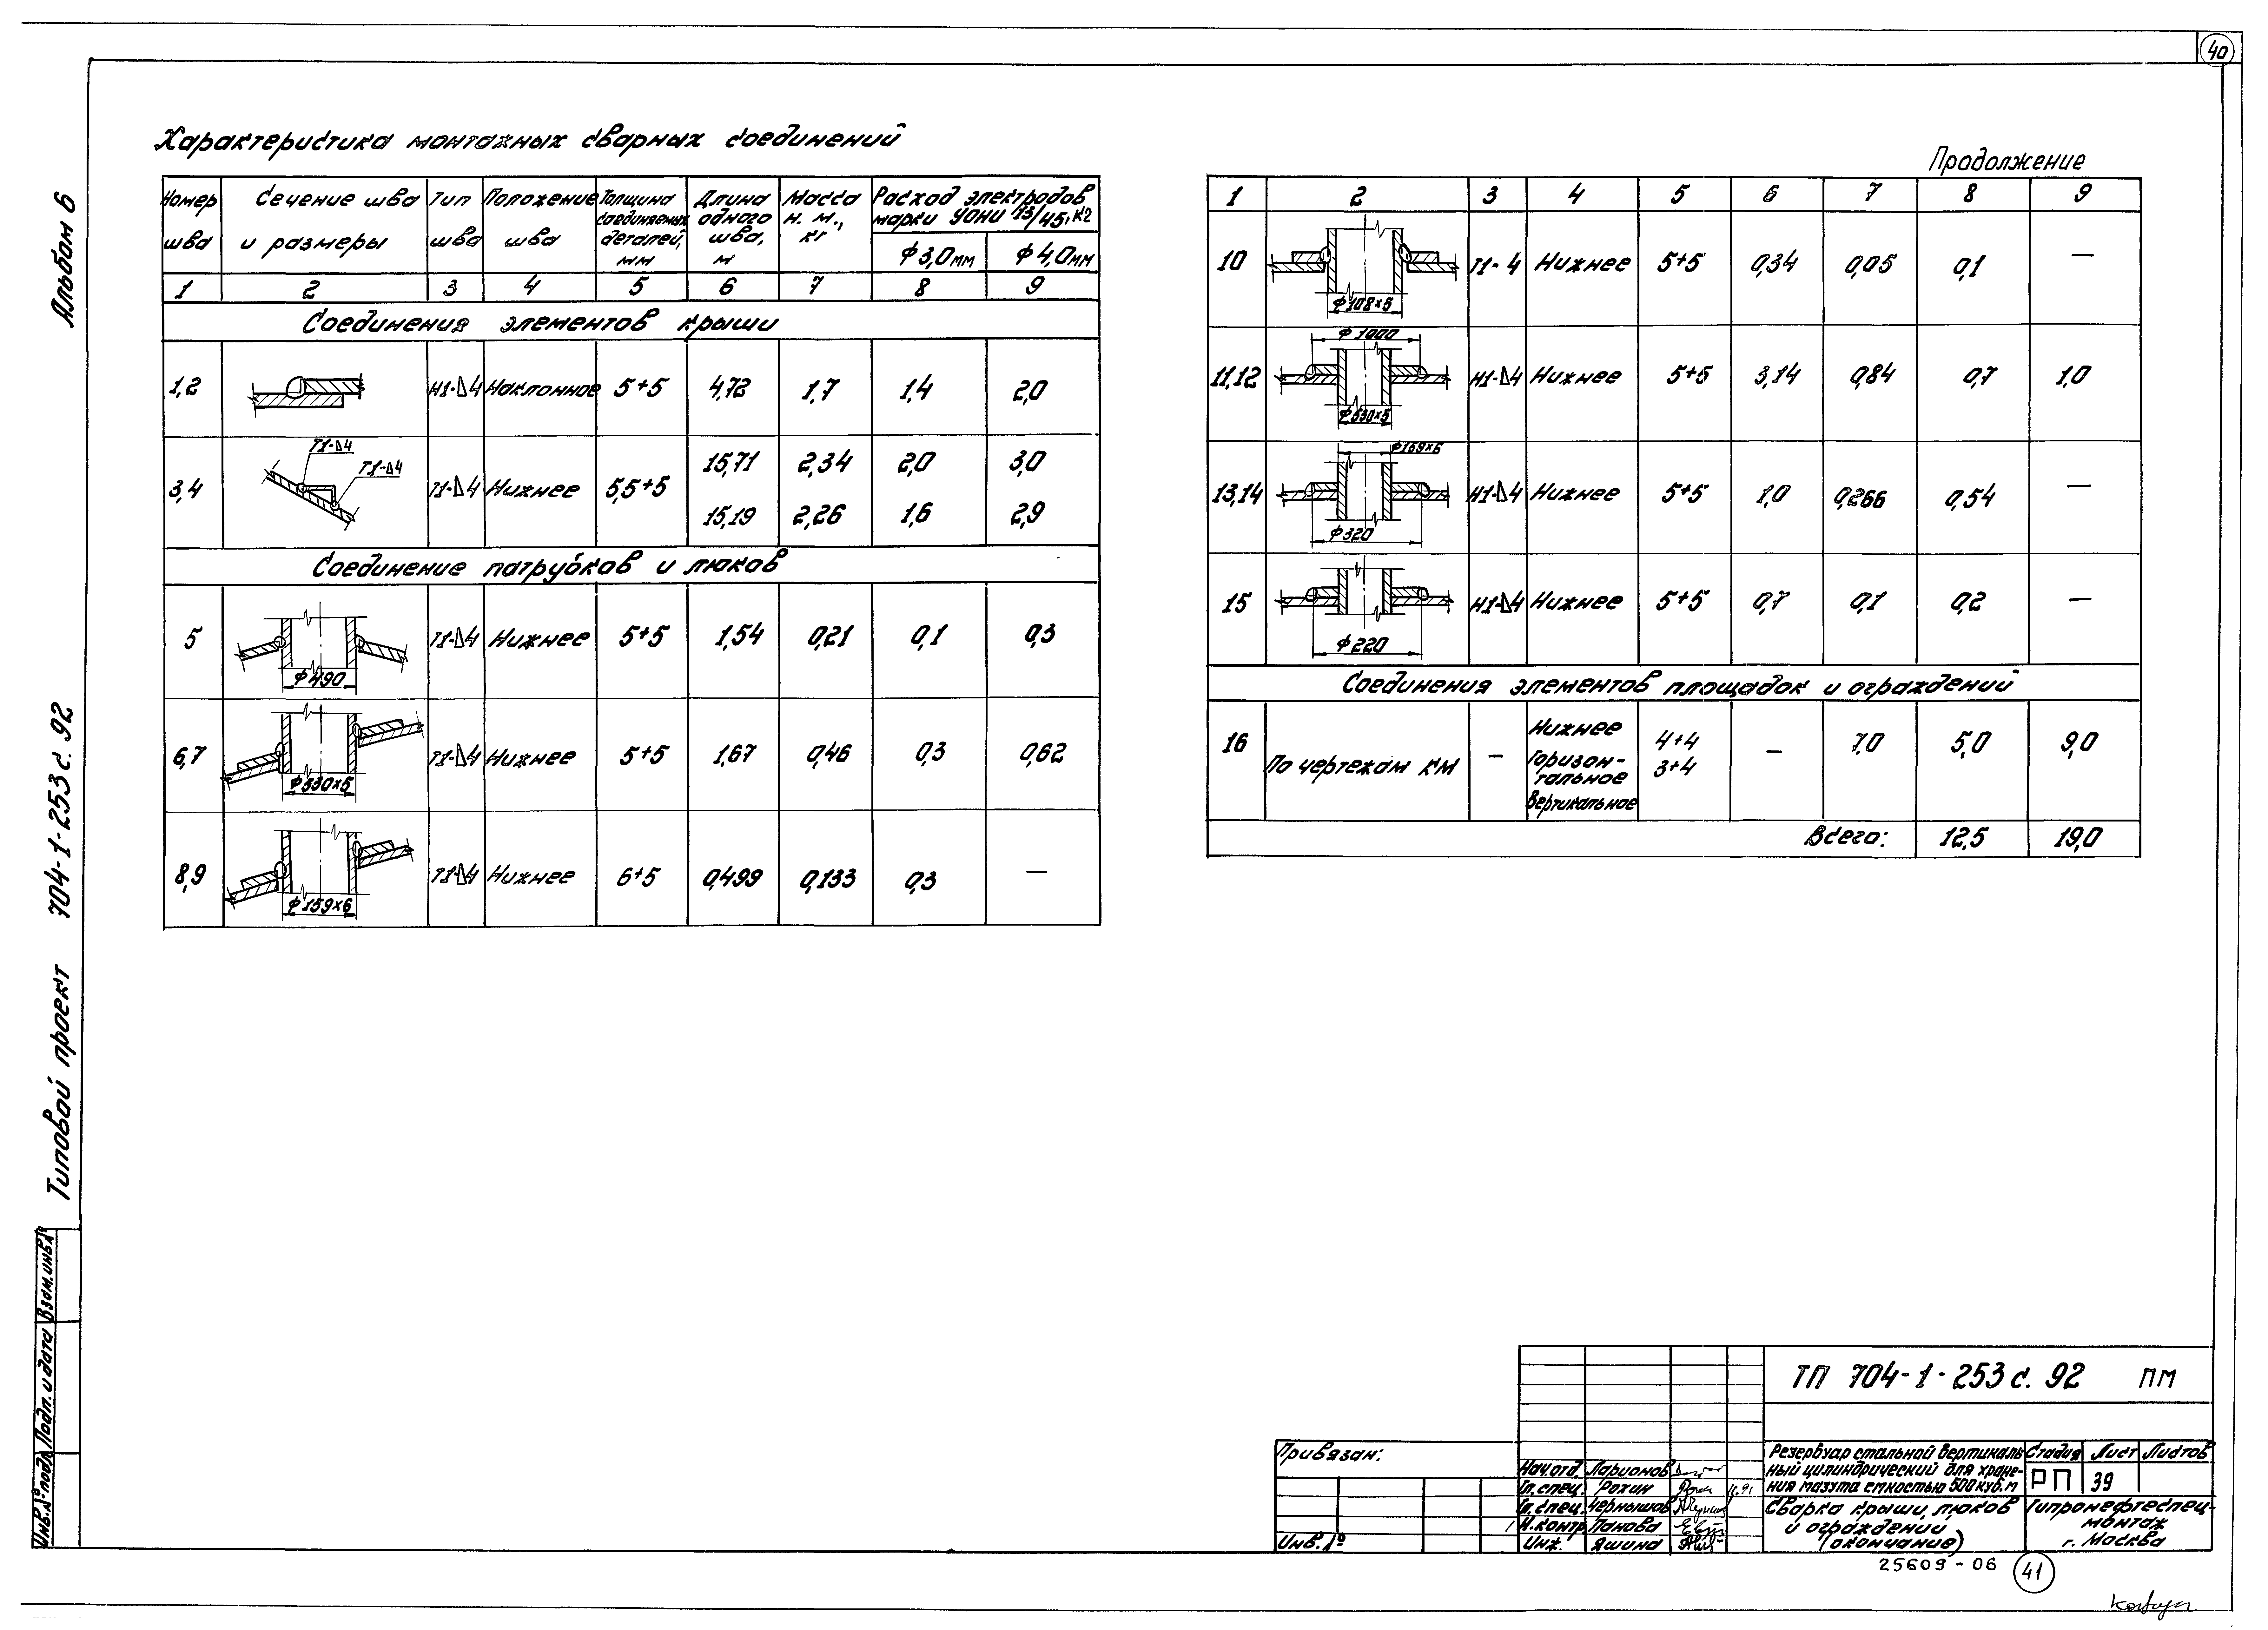 40
Альбом 6
Типовой проект 704-1-253 с. 92
Взам. инв. №
Подп. и дата
Инв. № подл.
Характеристика монтажных сварных соединений
Номер шва | Сечение шва и размеры | Тип шва | Положение шва | Толщина соединяемых деталей, мм | Длина одного шва, м | Масса н. м., кг | Расход электродов марки УОНИ 13/45, кг
ф 3,0 мм | ф 4,0 мм
1 2 3 4 5 6 7 8 9
Соединения элементов крыши
1,2 Н1-∆4 Наклонное 5+5 4,72 1,7 1,4 2,0
Т1-∆4
Т1-∆4
3,4 Т1-∆4 Нижнее 5,5+5 15,71 2,34 2,0 3,0
15,19 2,26 1,6 2,9
Соединение патрубков и люков
5 ф 490 Т1-∆4 Нижнее 5+5 1,54 0,21 0,1 0,3
6,7 ф 530×5 Т1-∆4 Нижнее 5+5 1,67 0,46 0,3 0,62
8,9 ф 159×6 Т1-∆4 Нижнее 6+5 0,499 0,133 0,3 —
Продолжение
1 2 3 4 5 6 7 8 9
10 ф 108×5 Т1-4 Нижнее 5+5 0,34 0,05 0,1 —
ф 1000
11,12 ф 530×5 Н1-∆4 Нижнее 5+5 3,14 0,84 0,7 1,0
ф 159×6
13,14 ф 320 Н1-∆4 Нижнее 5+5 1,0 0,266 0,54 —
15 ф 220 Н1-∆4 Нижнее 5+5 0,7 0,1 0,2 —
Соединения элементов площадок и ограждений
16 По чертежам КМ — Нижнее 4+4 — 7,0 5,0 9,0
Горизон-
тальное 3+4
Вертикальное
Всего: 12,5 19,0
ТП 704-1-253 с. 92 ПМ
Привязан:
Инв. №
Нач. отд. Ларионов
Гл. спец. Рохин
Гл. спец. Чернышов
Н. контр. Панова
Инж. Яшина
Резервуар стальной вертикаль
ный цилиндрический для хране-
ния мазута емкостью 500 куб. м
Стадия Лист Листов
РП 39
Сварка крыши, люков
и ограждений
(окончание)
Гипронефтеспец-
монтаж
г. Москва
25609-06 41